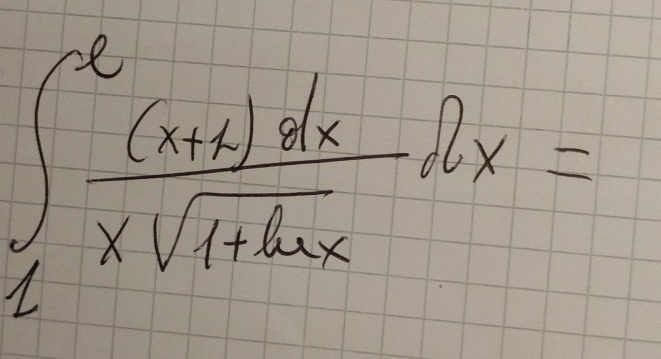 ∫₁ᵉ (x+1) dx / x√(1+ln x) dx =